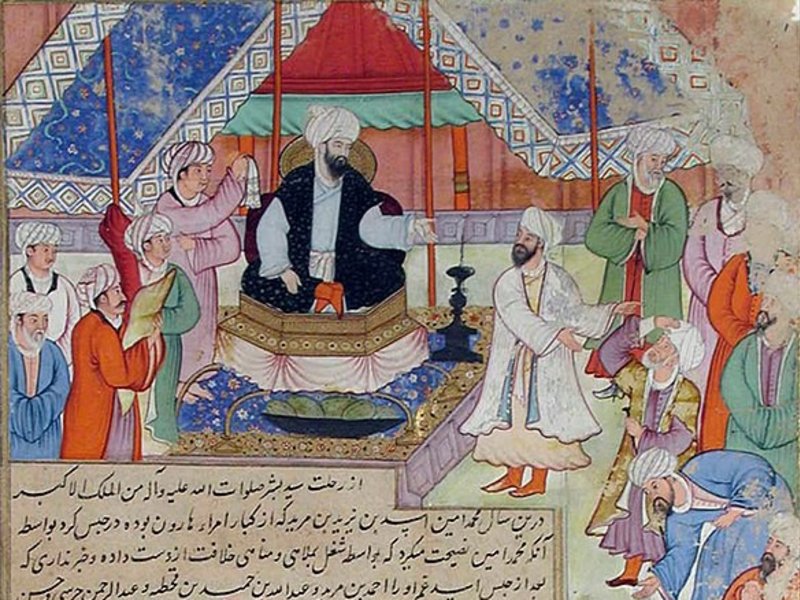 از رحلت سید بشر صلوات الله علیه وآله من الملک الاکبر
درین سال محمد امین اسید بن یزید بن مزید که از کبار امراء هارون بوده در حبس کرد بواسطه
آنکه محمد امین نصیحت میکرد که بواسطه شغل بملاهی و مناهی خلافت از دست داده و خبر نداری که
بعد از حبس اسید عم او را احمد بن مزید و عبدالله بن حمید بن قحطبه و عبدالرحمن